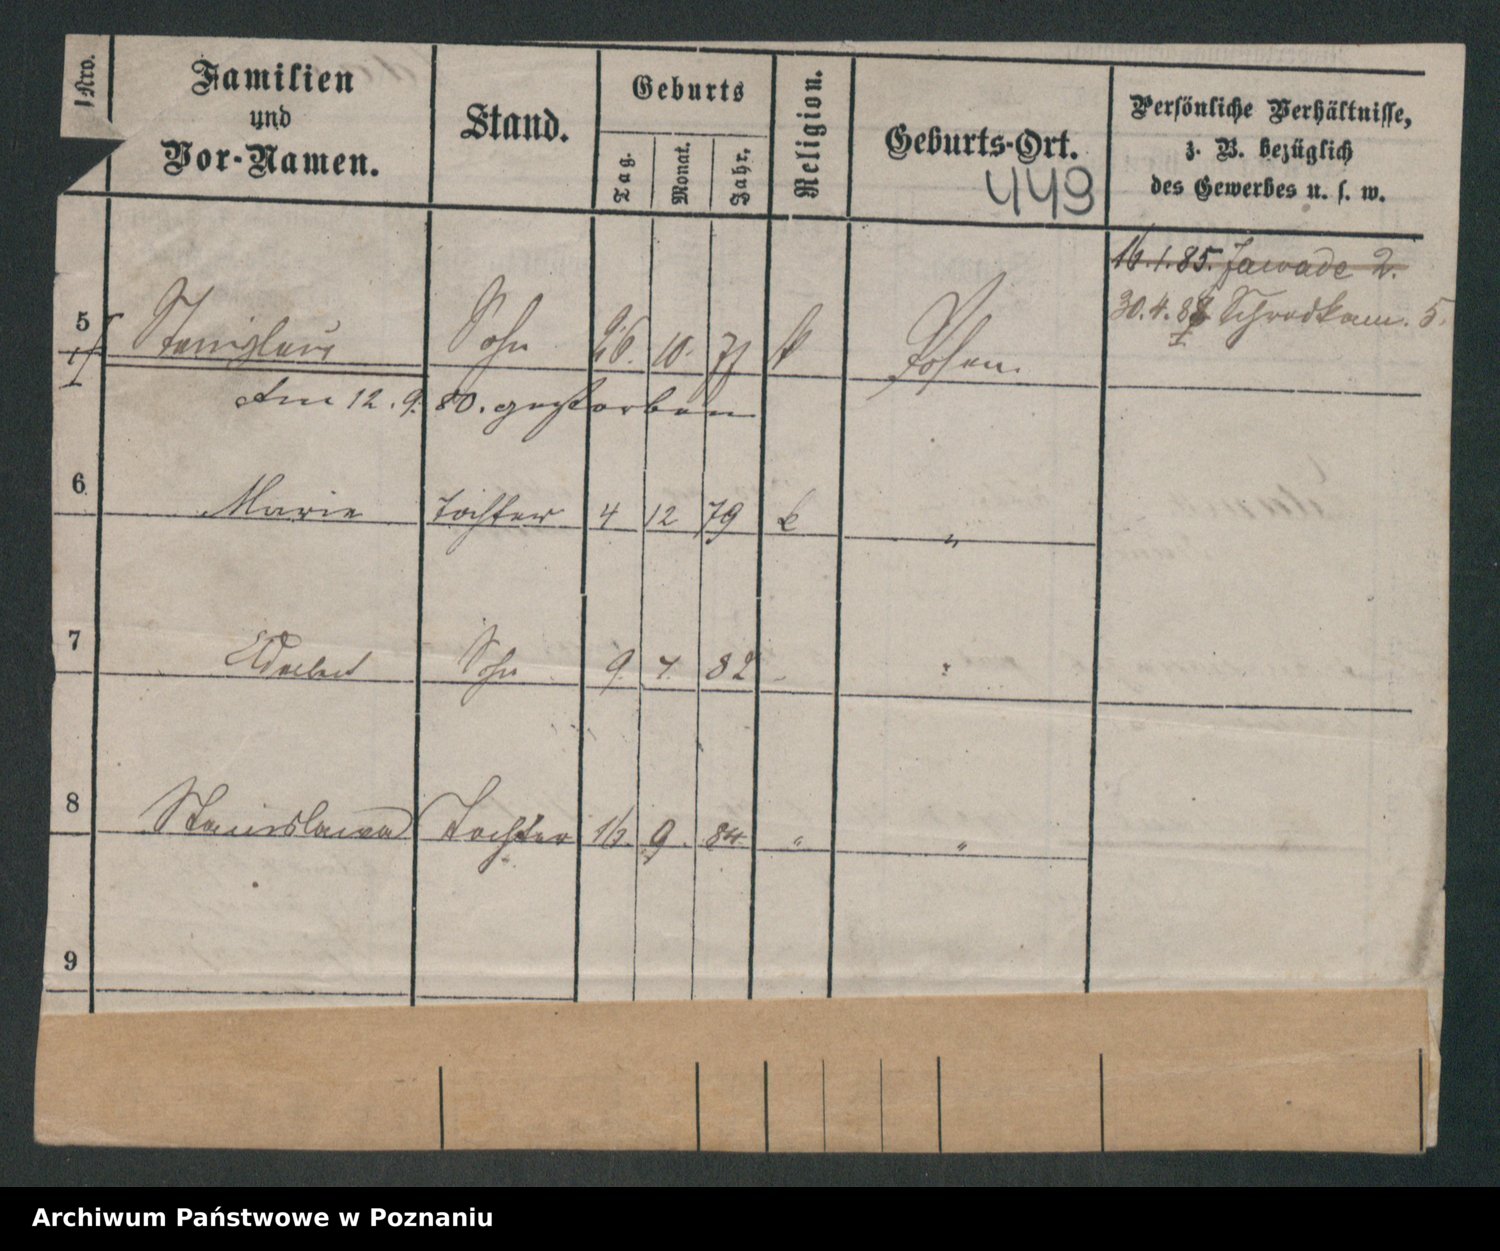 Nro.
Familien
und
Vor-Namen.
Stand.
Geburts
Tag.
Monat.
Jahr.
Religion.
Geburts-Ort.
449
Persönliche Verhältnisse,
z. B. bezüglich
des Gewerbes u. s. w.
16.1.85. Zawade 2.
30.4.88 Schrodkam. 5.
5 Stanislaus Sohn 26. 10. 77 k Posen.
Am 12. 9. 80. gestorben
6 Marie Tochter 4 12 79 k "
7 Sohn 9. 4. 82 "
8 Stanislawa Tochter 16. 9. 84 " "
9
Archiwum Państwowe w Poznaniu